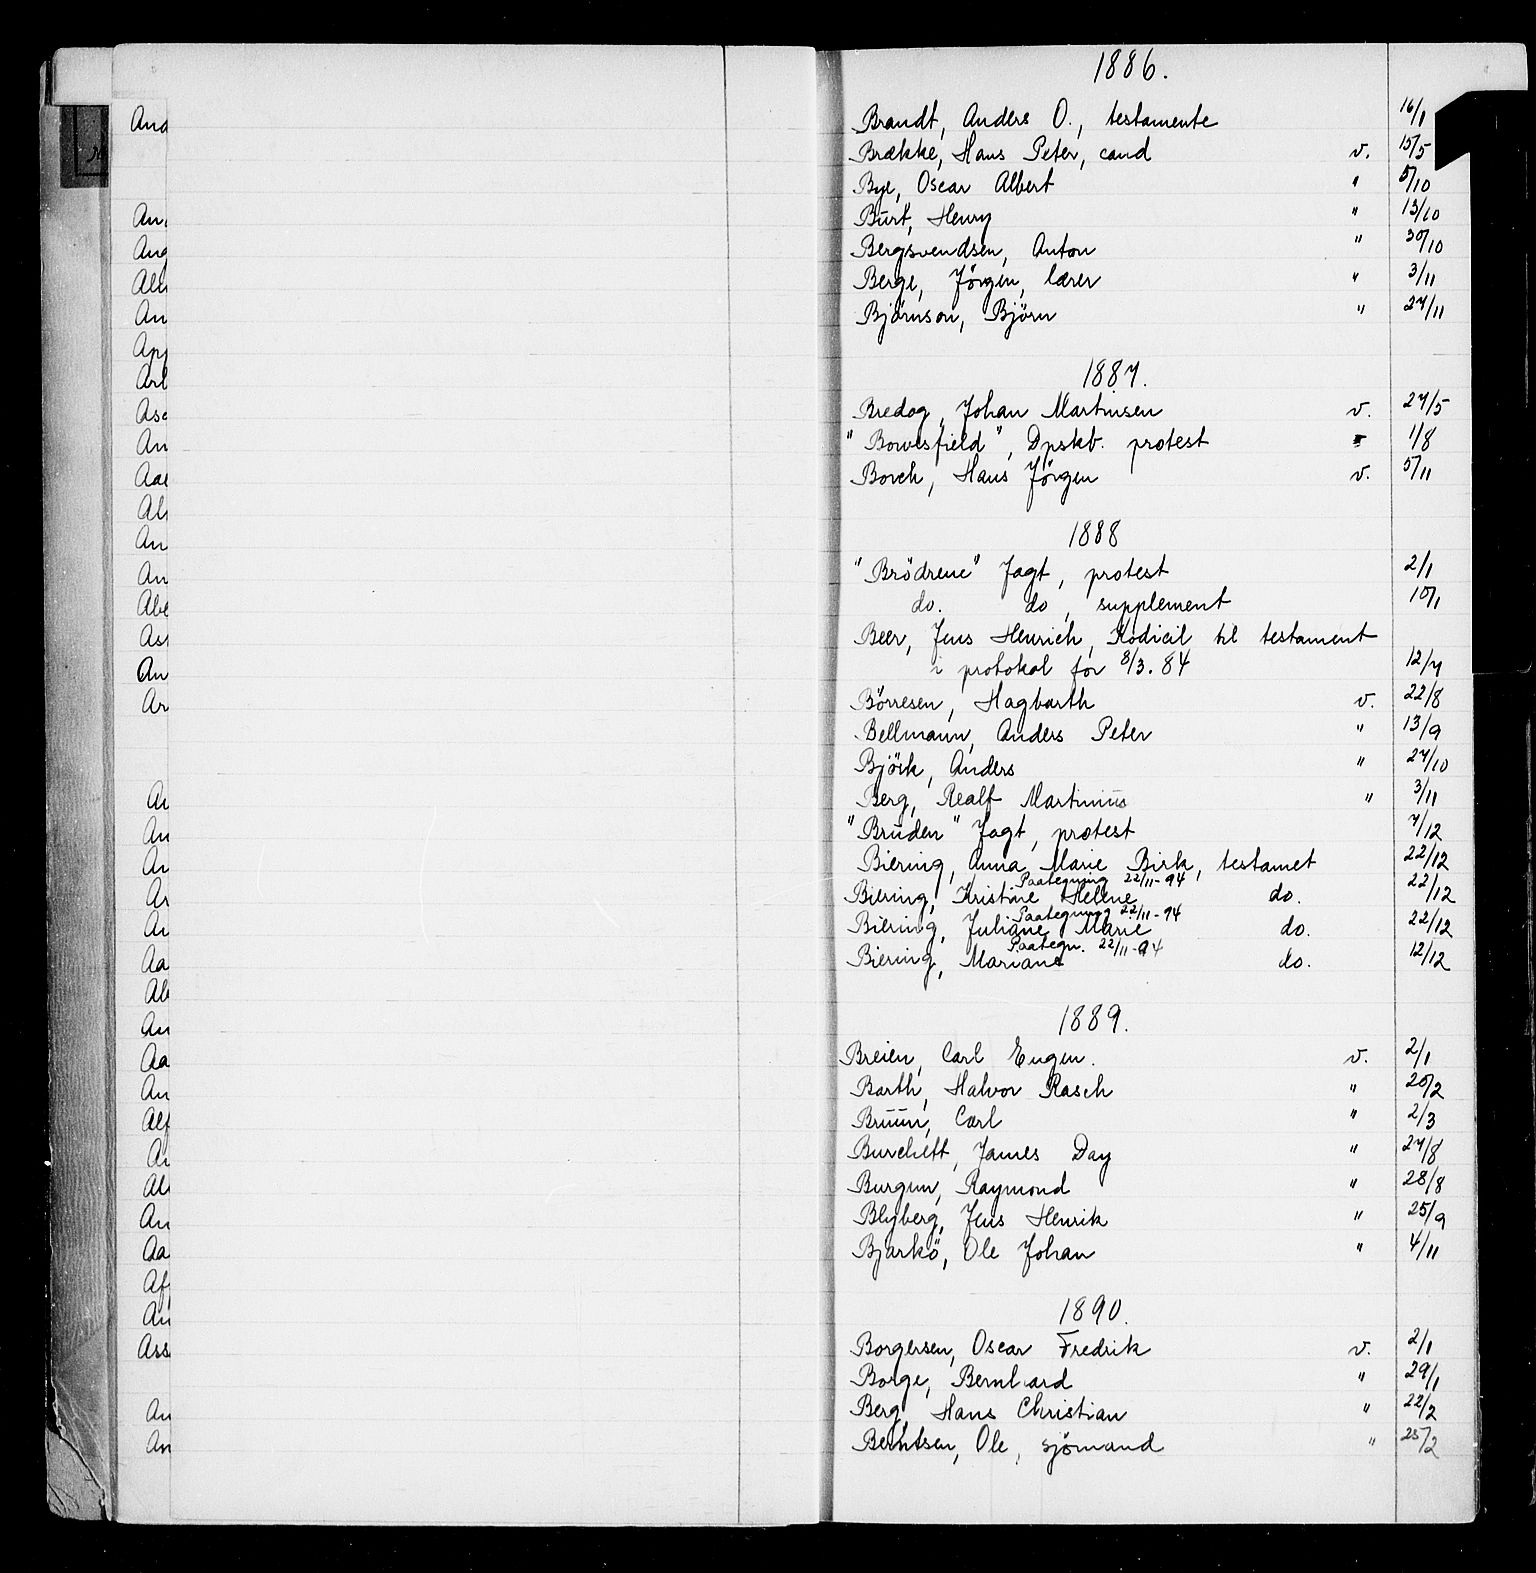 And
An
Ang
Ale
An
App
Arl
Asc
An
Aae
Al
An
An
Abe
Ass
An
Ar
Ar
An
An
Ar
An
Aa
Ab
An
Aa
An
Alf
An
Al
An
Aa
Af
An
Ass
An
An
1886.
Brandt, Anders O., testamente 16/1
Brække, Hans Peter, cand v. 15/5
Bye, Oscar Albert " 5/10
Burt, Henry " 13/10
Bergsvendsen, Anton " 30/10
Berge, Jörgen, lærer " 3/11
Björnson, Björn " 27/11
1887.
Bredog, Johan Martinsen v. 27/5
"Bowesfield", Dpskb. protest 1/8
Borch, Hans Jörgen v. 5/11
1888
"Brödrene" Jagt, protest 2/1
do. do, supplement 10/1
Beer, Jens Henrich, Kodicil til testament
i protokol for 8/3.84 12/7
Börresen, Hagbarth v. 22/8
Bellmann, Anders Peter " 13/9
Björk, Anders " 27/10
Berg, Realf Martinius " 3/11
"Bruden" Jagt, protest 7/12
Biering, Anna Marie Birk, testamet 22/12
Paategning 22/11-94
Biering, Kristine Helene do. 22/12
Paategning 22/11-94
Biering, Juliane Marie do. 22/12
Paategn. 22/11-94
Biering, Mariane do. 12/12
1889.
Breien, Carl Eugen. v. 2/1
Barth, Halvor Rasch " 20/2
Bruun, Carl " 2/3
Burchett, James Day " 27/8
Burgun, Raymond " 28/8
Blyberg, Jens Henrik " 25/9
Bjarkö, Ole Johan " 4/11
1890.
Borgersen, Oscar Fredrik v. 2/1
Borge, Bernhard " 29/1
Berg, Hans Christian " 22/2
Berntsen, Ole, sjömand " 25/2